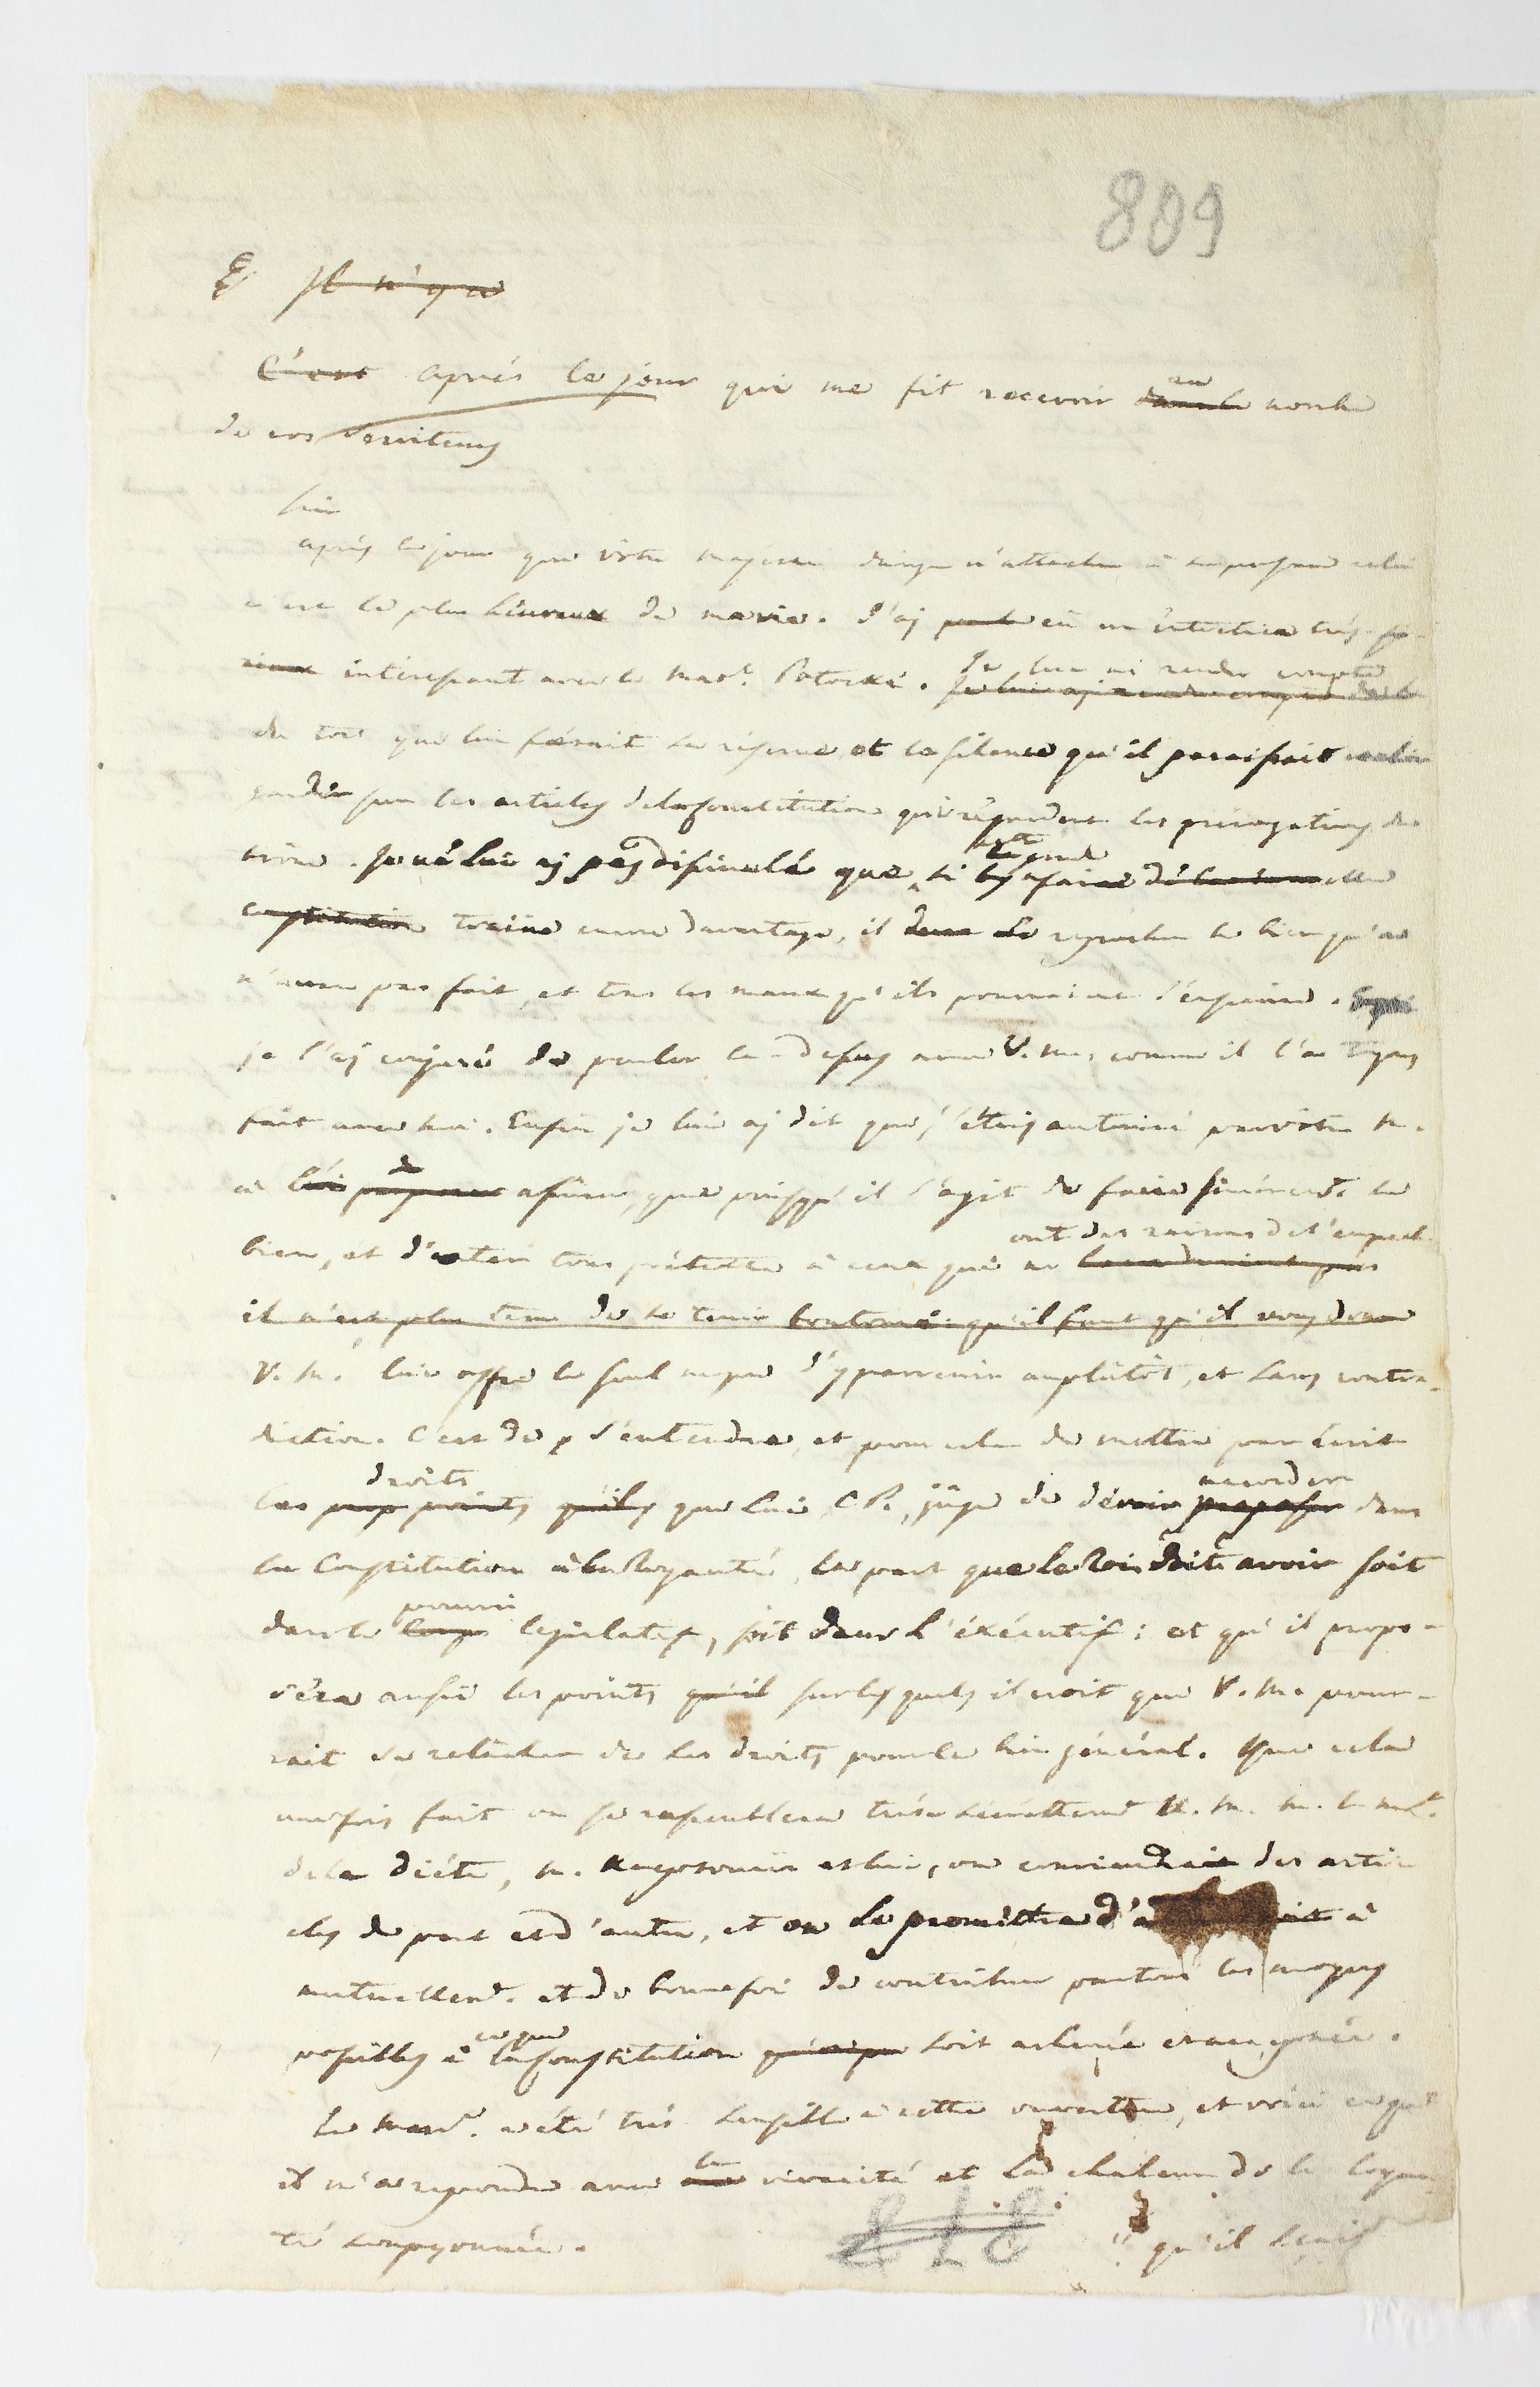 809
Il n'y a
C'est après le jour qui me fit recevoir dans le au nombre
de vos serviteurs
Sire
après le jour que Votre Majesté daigna m'attacher à sa personne celui
ci est le plus heureux de ma vie. J'ai parlé eû un entretien très-sé-
rieux intéressant avec le Mar.l Potocki. Je lui ai rendu compte
du tort que lui faisait la réserve et le silence qu'il paraissait vouloir
garder sur les articles de la Constitution qui regardent les prérogatives du
trône. Je ne lui ai pas dissimulé que, si cette faire de la elle
constitution traîne encore davantage, il se reprocher le bien qu'on
n'aura pas fait, et tous les maux qui pourraient s'ensuivre.
je l'ai conjuré de parler là-dessus avec V. M. comme il l'a toujours
fait avec moi. Enfin je lui ai dit que j'étais autorisé par Votre M.
à lui proposer de assurer, que puisqu'il s'agit de faire sincèremt. le
bien, et d'oter tous prétextes à ceux qui ont des raisons de l'empech.
il n'est plus tems de se tenir boutonné: qu'il faut qu'il
V. M. lui offre le seul moyen d'y parvenir auplûtôt, et sans contra-
diction. C'est de s'entendre, et pour cela de mettre par écrit
les prop points droits qu'ils que lui, C. P., juge de devoir proposer accorder dans
la Constitution à la Royauté, la part que le Roi doit avoir soit
dans le corps pouvoir législatif, soit dans l'éxécutif: et qu'il propo-
sera aussi les points qu'il sur lesquels il croit que V. M. pour-
rait se relâcher de ses droits pour le bien général. Que cela
une fois fait on se rassemblera très secrettemt V. M. M. le M.l
de la Diéte, M. et lui, on conviendrait des arti-
cles de part et d'autre, et on se promettra d' à
mutuellemt. et de bonne foi de contribuer par tous les moyens
possibles à ce que la Constitution soit achevée
Le Mar.l a été très sensible à cette ouverture, et voici ce qu'
il m'a répondu avec la vivacité et la chaleur de la loyau-
té soupçonnée.
818
" qu'il